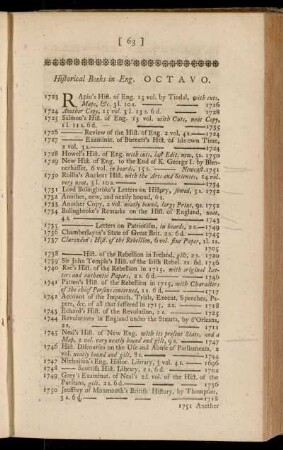 [ 63 ]
Historical Books in Eng. OCTAVO.
1723 RApin's Hist. of Eng. 15 vol. by Tindal, with cuts,
Maps, &c. 3l. 10s. — 1728
1724 Another Copy, 15 vol. 3l. 13s. 6d.
1725 Salmon's Hist. of Eng. 13 vol. with Cuts, neat Copy,
1l. 11s. 6d. — 1733
1726 —— Review of the Hist. of Eng. 2 vol. 4s. — 1724
1727 —— Examinat. of Burnett's Hist. of his own Time,
2 vol. 2s. — 1724
1728 Howel's Hist. of Eng. with cuts, last Edit. new, 5s. 1750
1729 New Hist. of Eng. to the End of K. George I. by Blen-
nerhasset, 6 vol. in boards, 15s. — Newcast. 1751
1730 Rollin's Antient Hist. with the Arts and Sciences,
very neat, 3l. 10s.
1731 Lord Bolingbroke's Letters on History, sewed, 5s. 1752
1732 Another, new, and neatly bound, 6s.
1733 Another Copy, 2 vol. neatly bound, large Print, 9s. 1752
1734 Bolingbroke's Remarks on the Hist. of England, neat,
4s.
1735 —— Letters on Patriotism, in boards, 2s.
1736 Chamberlayne's State of Great Brit. 2s. 6d. — 1745
1737 Clarendon's Hist. of the Rebellion, 6 vol. fine Paper, 2l. 2s.
1705
1738 —— Hist. of the Rebellion in Ireland, gilt, 2s.
1739 Sir John Temple's Hist. of the Irish Rebel. 2s. 6d.
1740 Rae's Hist. of the Rebellion in 1715. with original Let-
ters and authentic Papers, 2s. 6d.
1741 Patten's Hist. of the Rebellion in 1715, with Characters
of the chief Persons concerned, 2s. 6d.
1742 Account of the Impeach. Trials, Execut. Speeches, Pa-
pers, &c. of all that suffered in 1715, 2s.
1743 Echard's Hist. of the Revolution, 2s.
1744 Revolutions in England under the Stuarts, by d'Orleans,
2s.
1745 Neal's Hist. of New Eng. with its present State, and a
Map, 2 vol. very neatly bound and gilt, 9s.
1746 Hist. Discourses on the Use and Abuse of Parliaments, 2
vol. neatly bound and gilt, 8s.
1747 Nicholson's Eng. Histor. Library, 3 vol. 4s. — 1696
1748 —— Scottish Hist. Library, 2s. 6d.
1749 Grey's Examinat. of Neal's 2d. vol. of the Hist. of the
Puritans, gilt, 2s. 6d. — 1736
1750 Jeoffrey of Monmouth's British History, by Thompson,
3s. 6d. — 1718
1751 Another